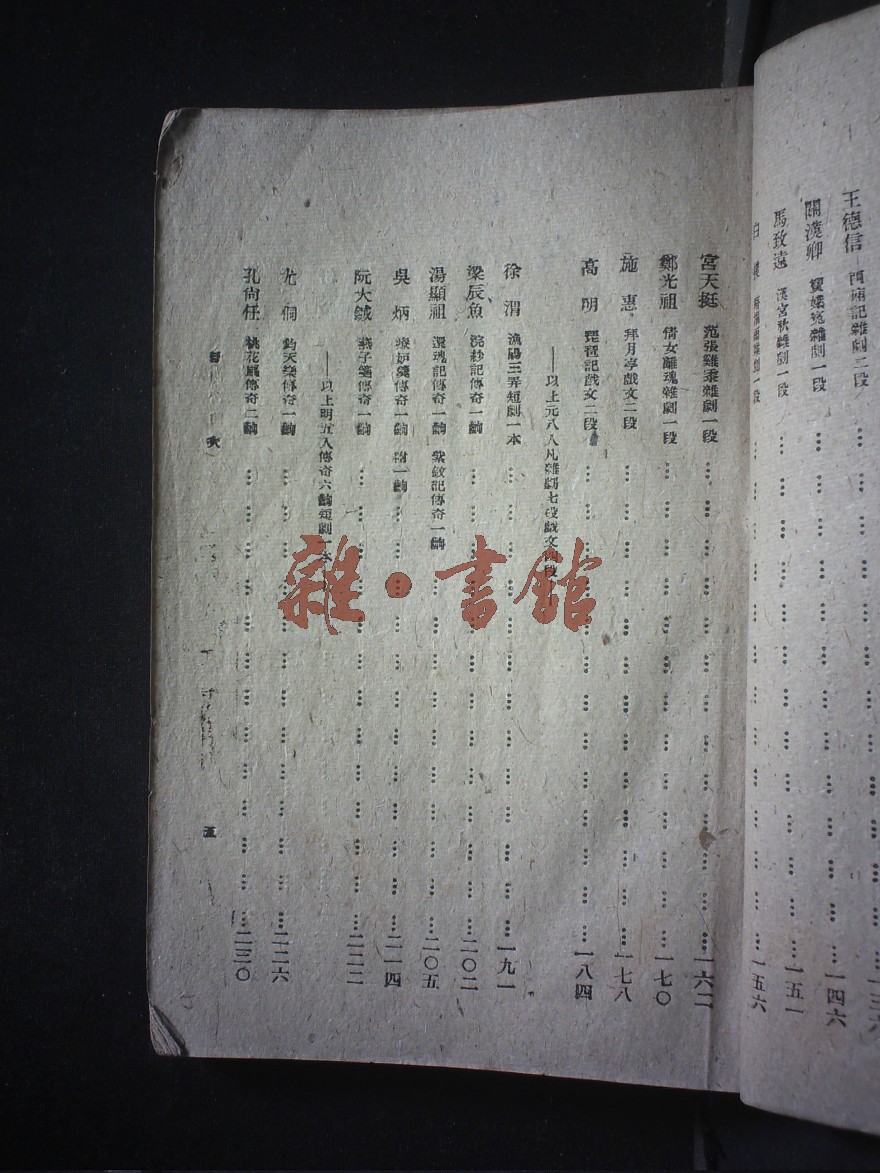 王德信 西廂記雜劇二段
關漢卿 竇娥冤雜劇一段 一四六
馬致遠 漢宮秋雜劇一段 一五一
白 雜劇一段 一五六
宮天挺 范張雞黍雜劇一段 一六二
鄭光祖 倩女離魂雜劇一段 一七〇
施惠 拜月亭戲文二段 一七八
高明 琵琶記戲文二段 一八四
——以上元八人凡雜劇七段戲文四段
徐渭 漁陽三弄短劇一本 一九一
梁辰魚 浣紗記傳奇一齣 二〇二
湯顯祖 還魂記傳奇一齣 紫釵記傳奇一齣 二〇五
吳炳 療妒羹傳奇一齣 又一齣 二一四
阮大鋮 燕子箋傳奇一齣 二二二
——以上明五人傳奇六齣短劇一本
尤侗 鈞天樂傳奇一齣 二二六
孔尚任 桃花扇傳奇二齣 二三〇
五
雜·書館